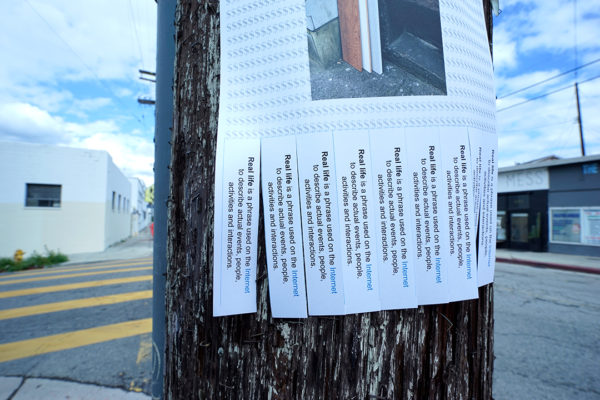 Real life is a phrase used on the Internet
to describe actual events, people,
activities and interactions.
Real life is a phrase used on the Internet
to describe actual events, people,
activities and interactions.
Real life is a phrase used on the Internet
to describe actual events, people,
activities and interactions.
Real life is a phrase used on the Internet
to describe actual events, people,
activities and interactions.
Real life is a phrase used on the Internet
to describe actual events, people,
activities and interactions.
Real life is a phrase used on the Internet
to describe actual events, people,
activities and interactions.
Real life is a phrase used on the Internet
to describe actual events, people,
activities and interactions.